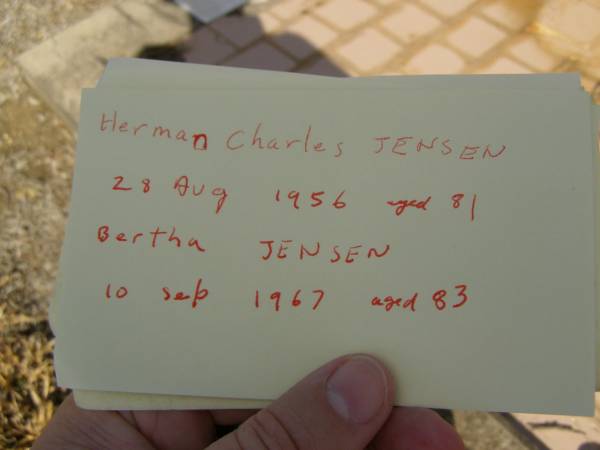 Herman Charles JENSEN
28 Aug 1956 aged 81
Bertha JENSEN
10 Sep 1967 aged 83